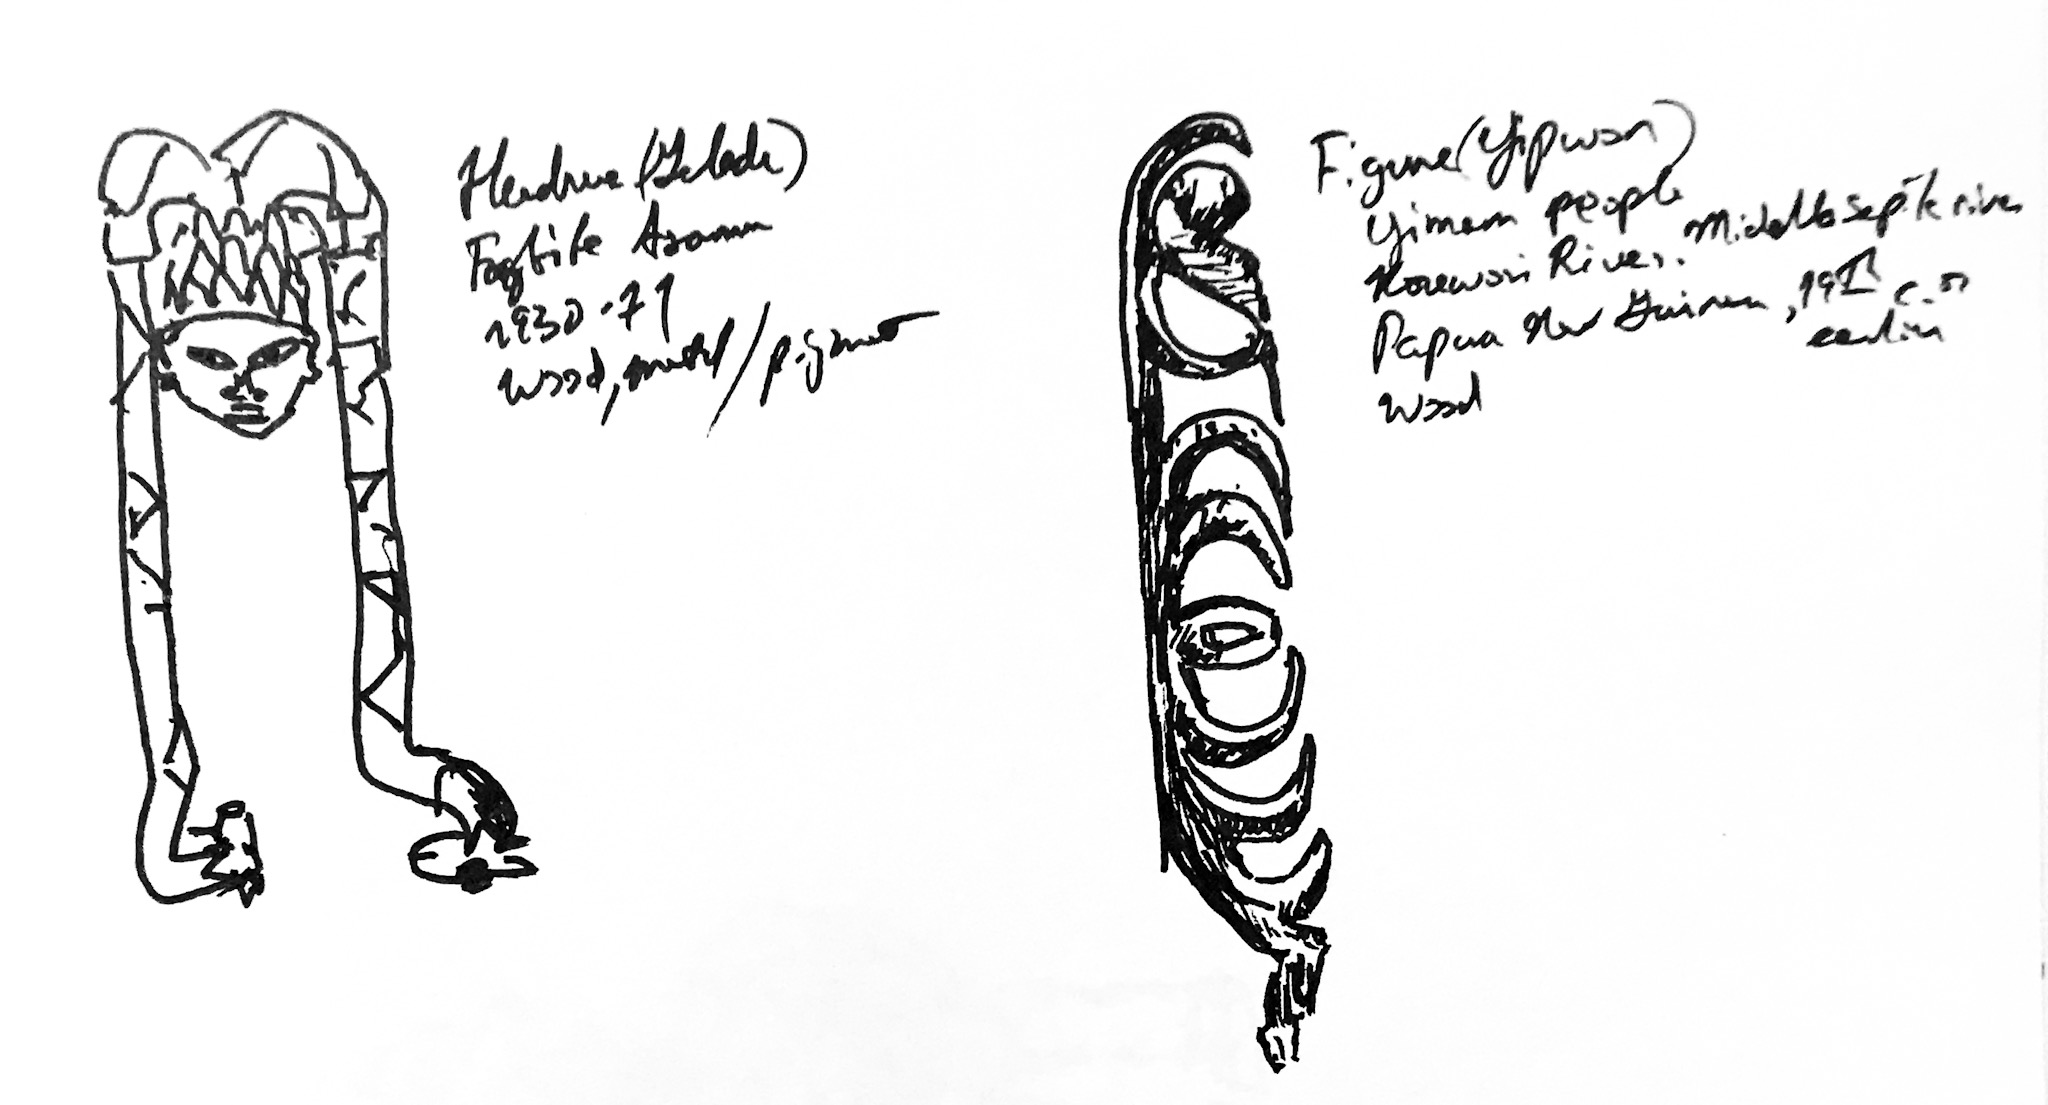 Headdress (Gelede)
Fagbite Asamu
1930-71
Wood, metal / pigment
Figure (Yipwon)
Yimam people
Korewori River. Middle Sepik river
Papua New Guinea, 19th c. or
earlier
Wood